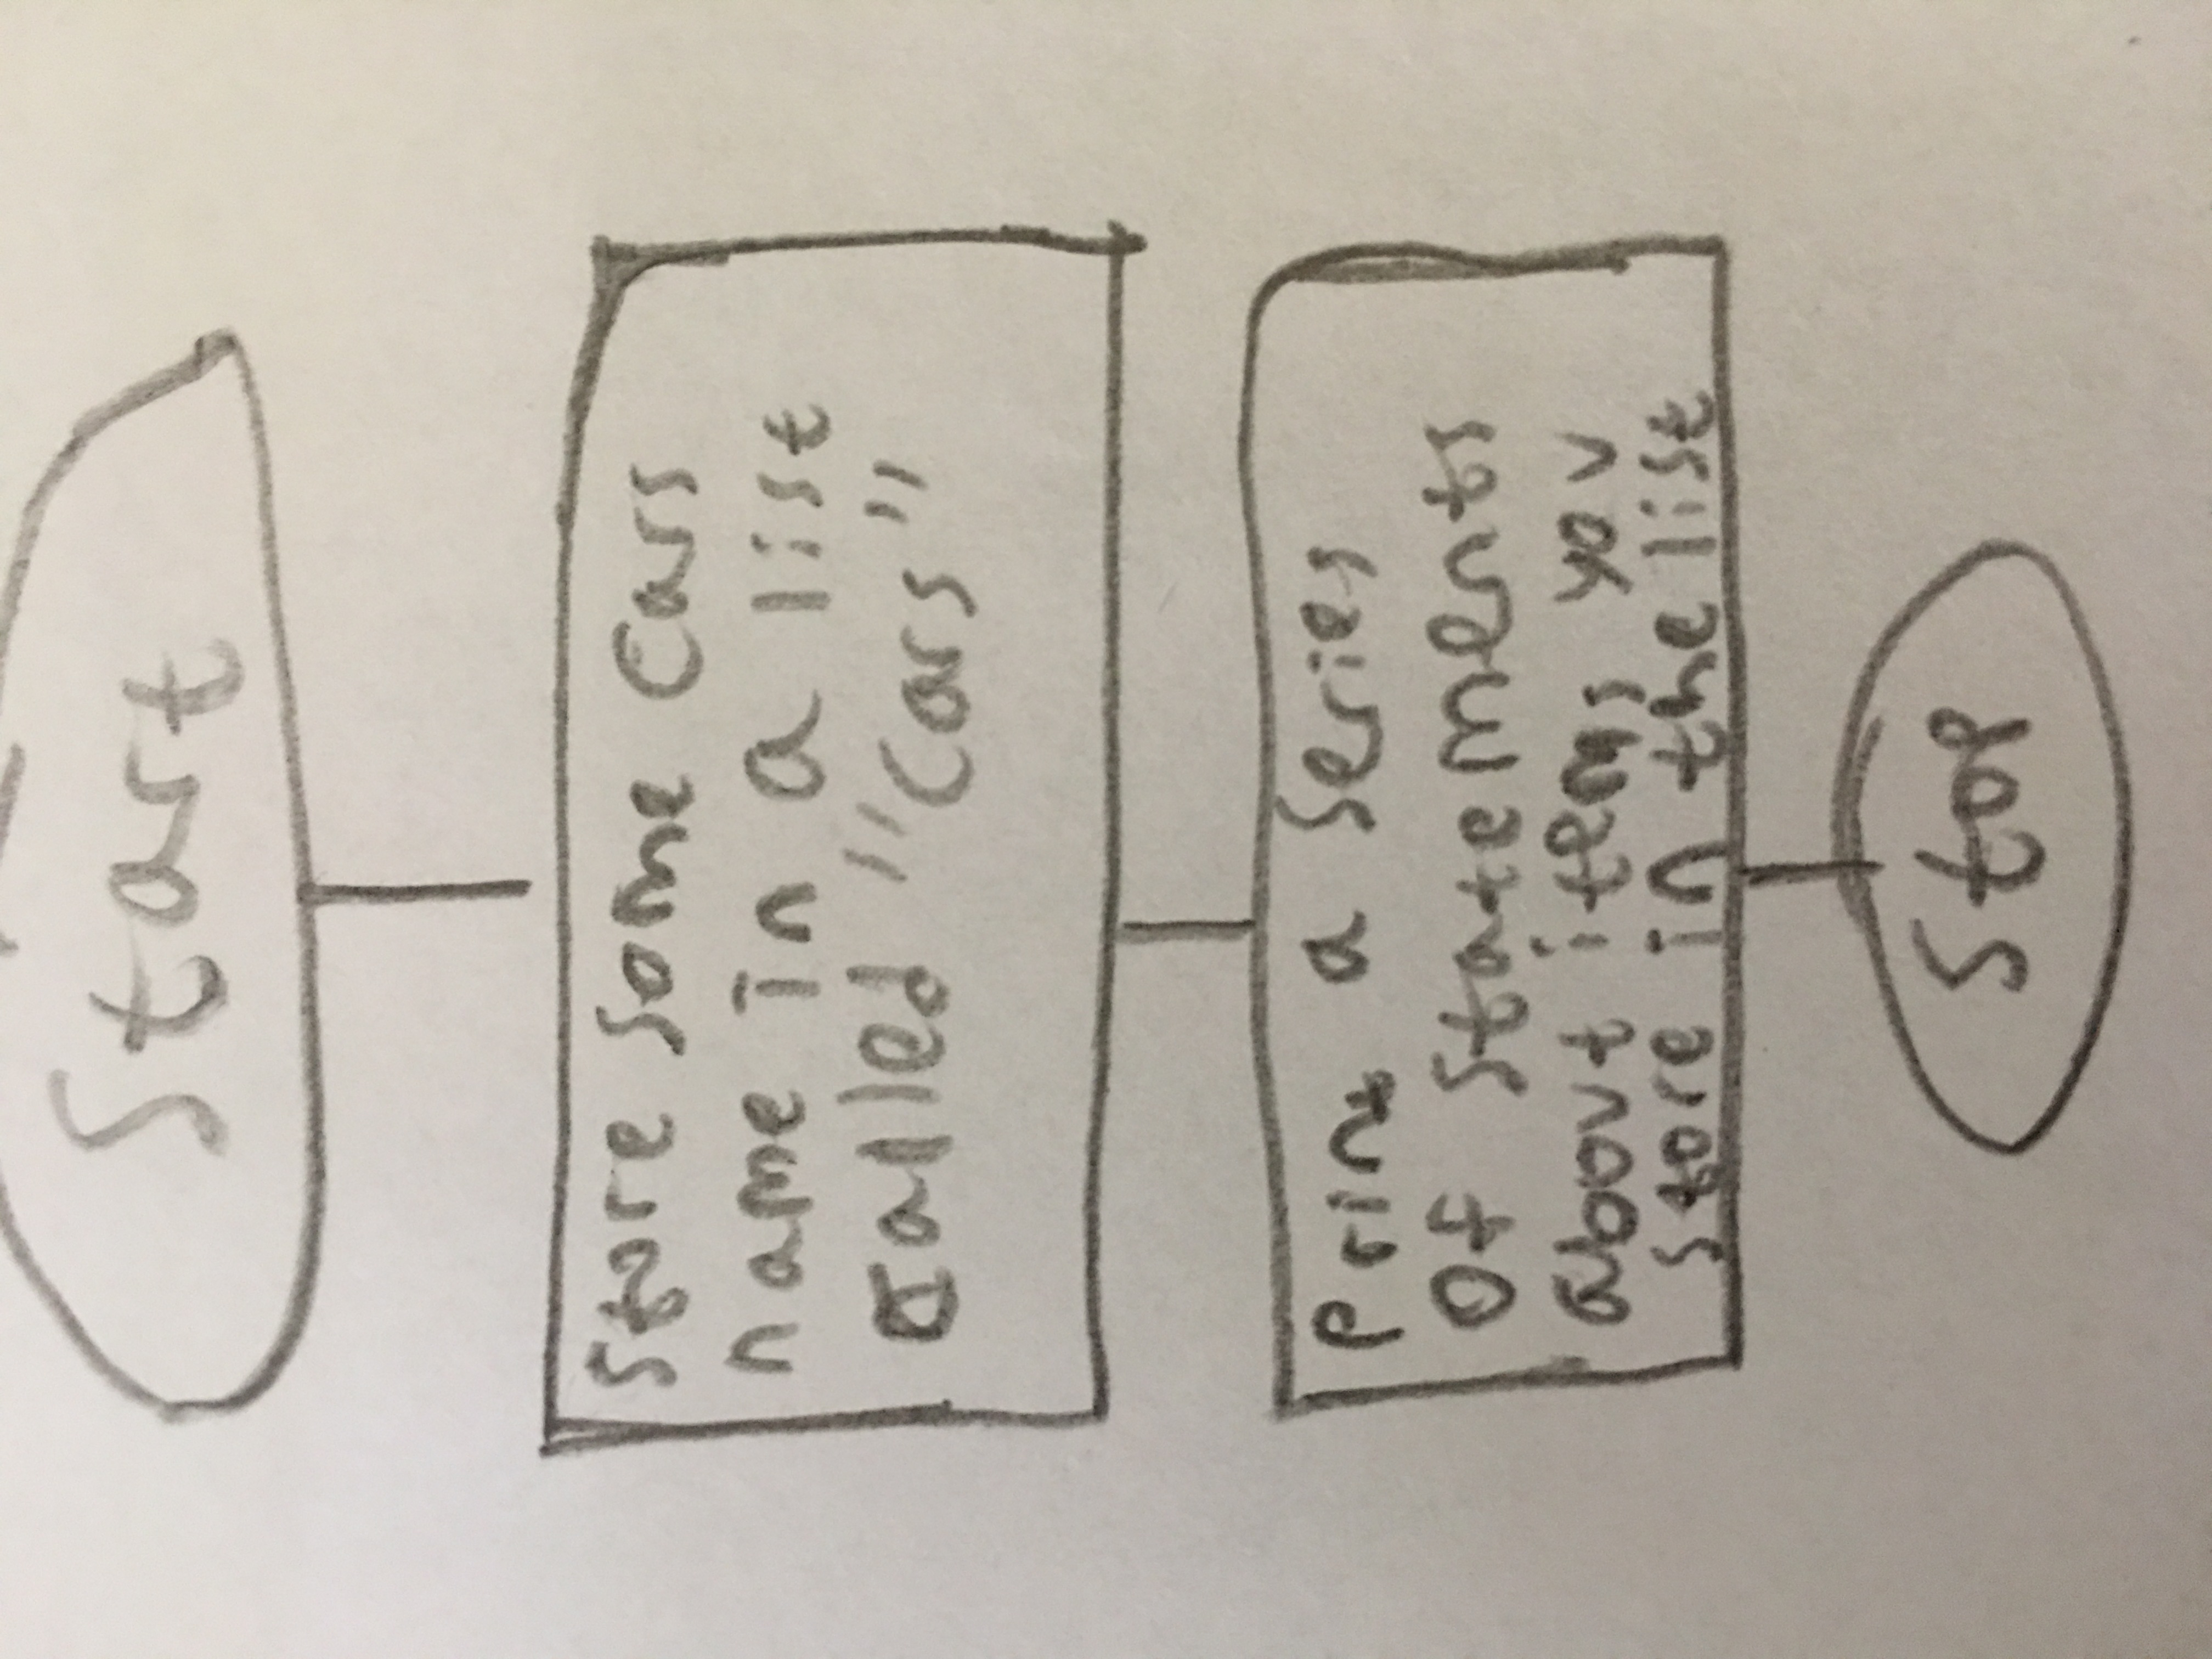 Start
Store Some Cars
name in a list
Called "Cars"
Print a Series
Of Statements
about items you
store in the list
Stop